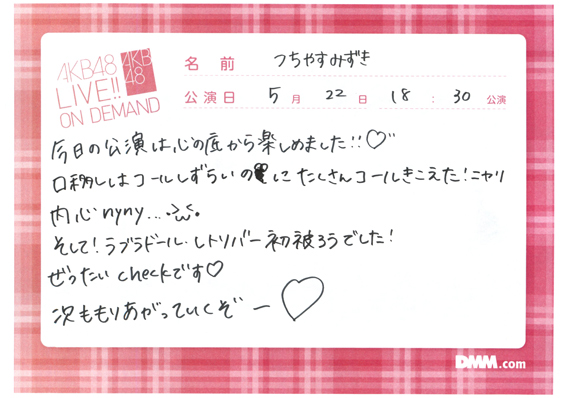 AKB48
LIVE!!
ON DEMAND
AKB
48
名前 つちやすみずき
公演日 5月 22日 18:30公演
今日の公演は、心の底から楽しめました!!♡
口移しはコールしずらいのにたくさんコールきこえた!ニヤリ
内心nyny...
そして!ラブラドール・レトリバー初披ろうでした!
ぜったいcheckです♡
次ももりあがっていくぞー♡
DMM.com